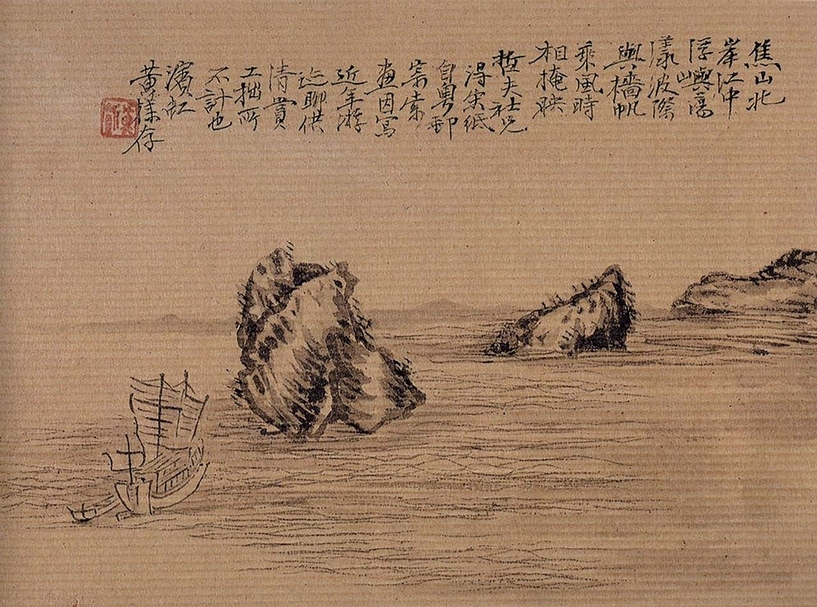 焦山北
岸江中
浮嶼蕩
漾波際
與檣帆
乘風時
相掩映
哲夫社兄
得宋紙
自粵郵
寄索
畫因寫
近年游
迹聊供
清賞
工拙所
不計也
濱虹
黃樸存